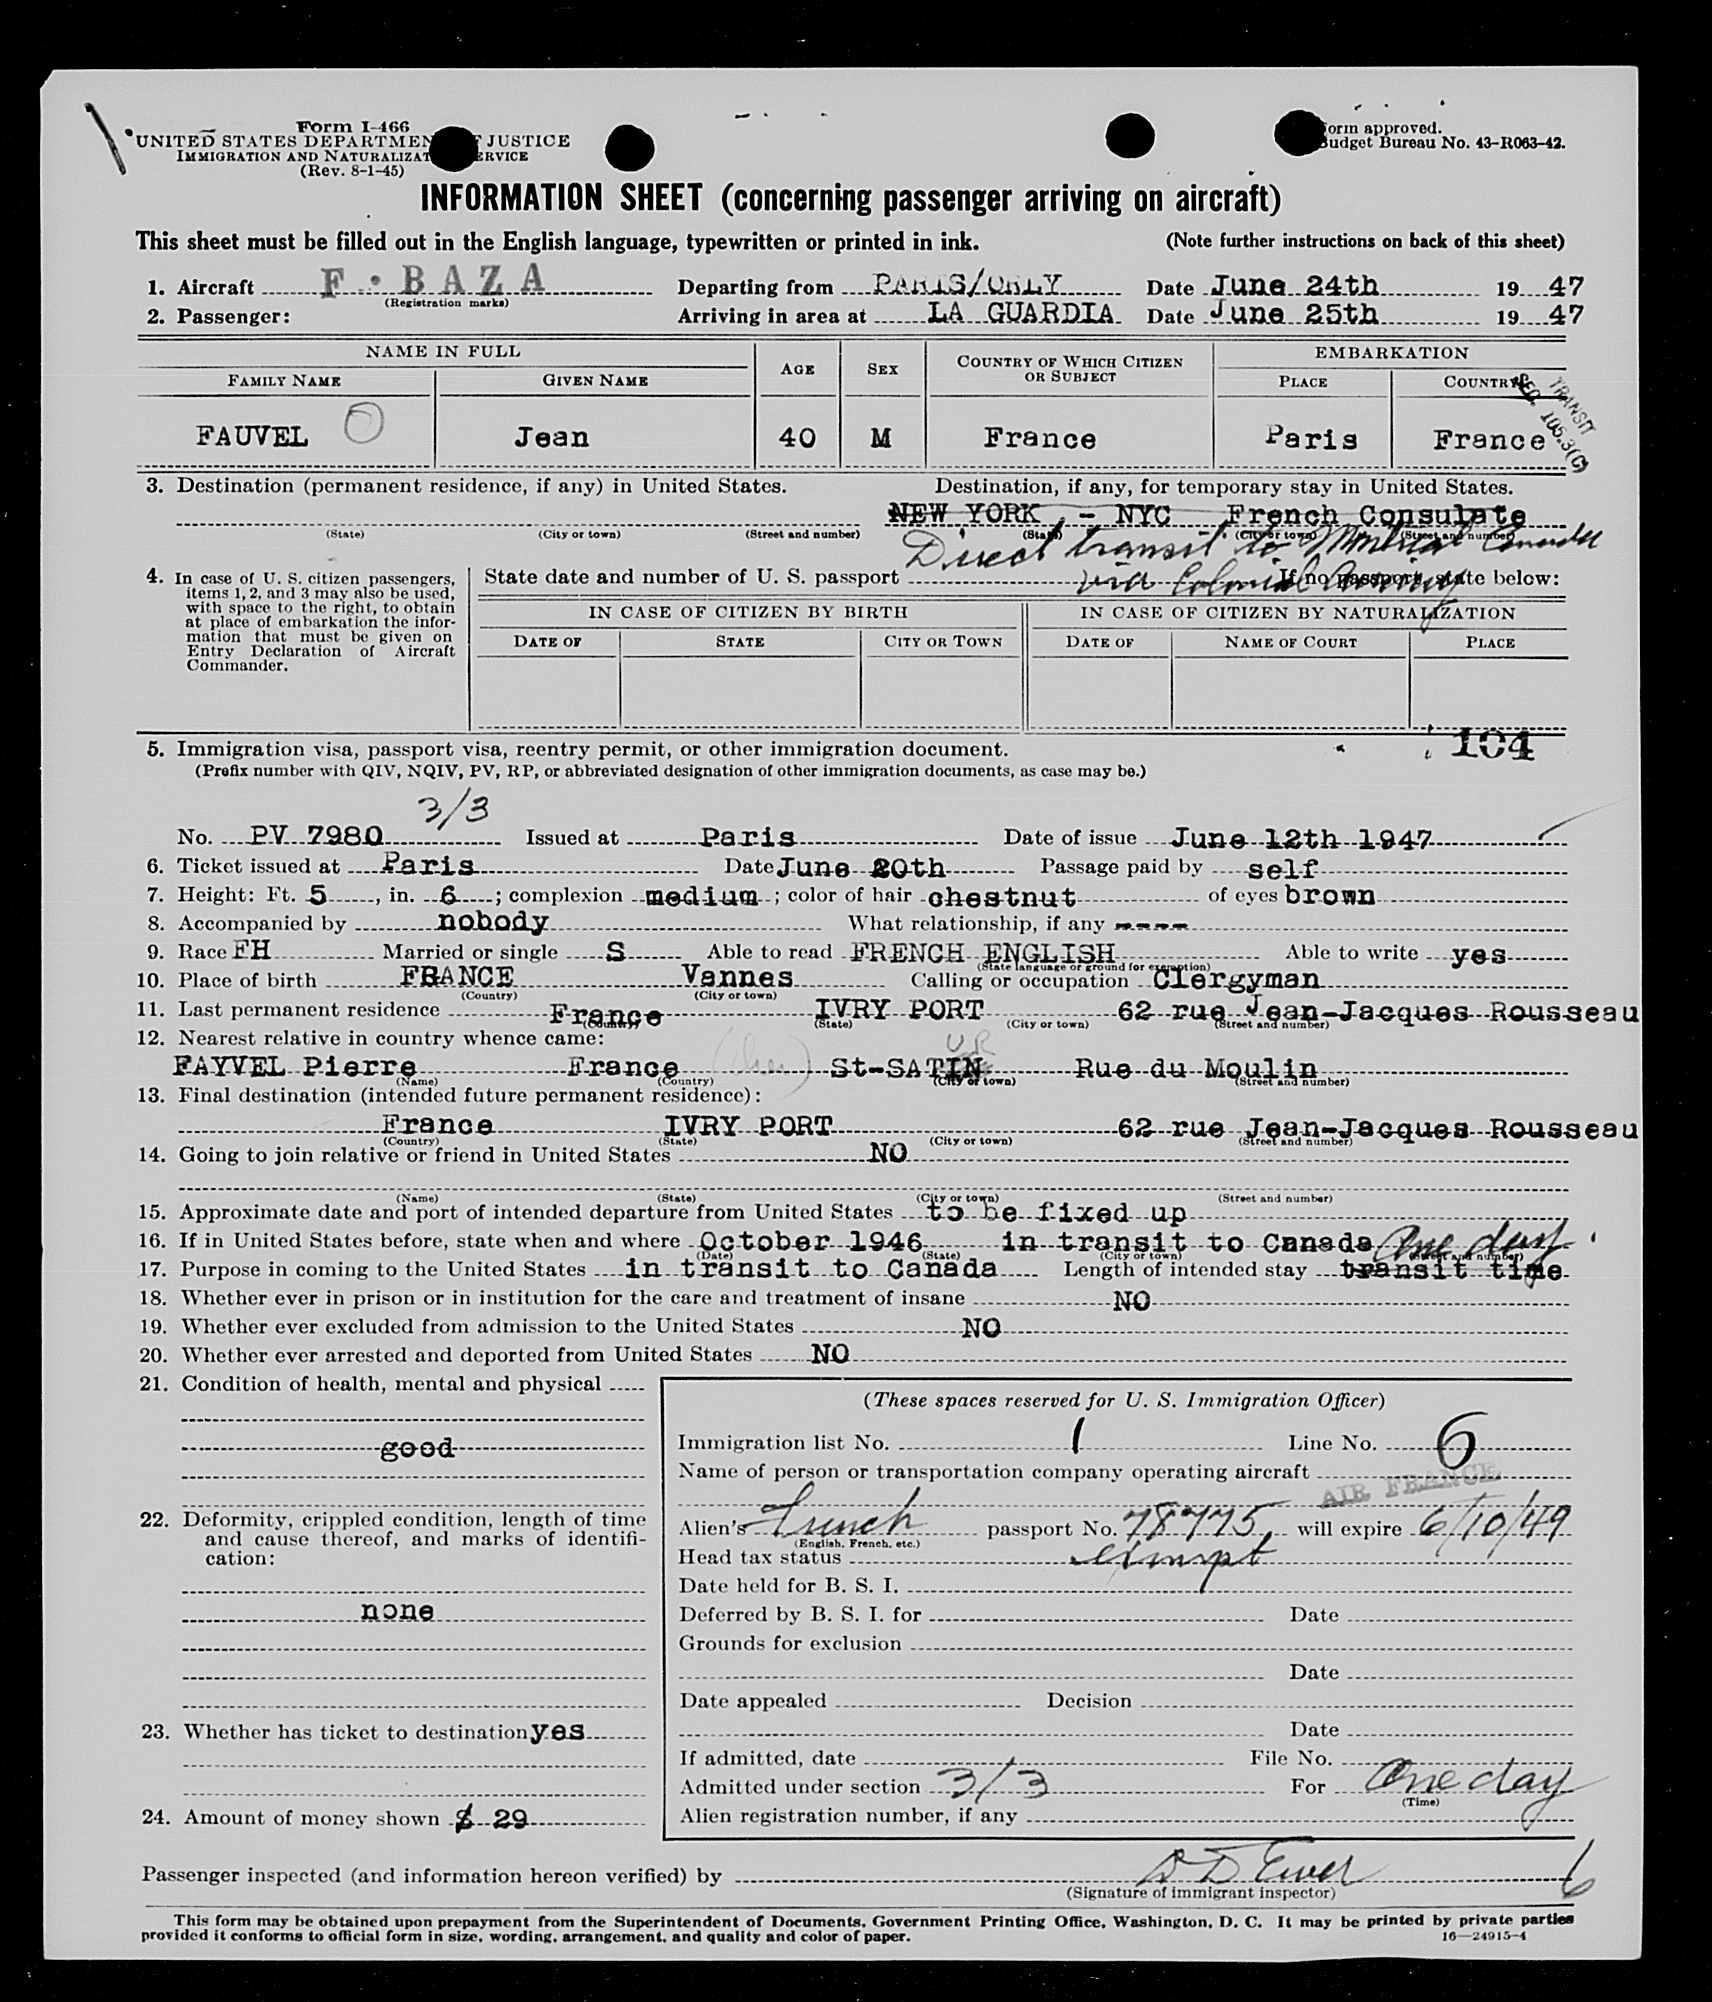 Form I-466
UNITED STATES DEPARTMENT OF JUSTICE
IMMIGRATION AND NATURALIZATION SERVICE
(Rev. 8-1-45)
Form approved.
Budget Bureau No. 43-R063-42.
INFORMATION SHEET (concerning passenger arriving on aircraft)
This sheet must be filled out in the English language, typewritten or printed in ink. (Note further instructions on back of this sheet)
1. Aircraft F·BAZA Departing from PARIS/ORLY Date June 24th 19 47
(Registration marks)
2. Passenger: Arriving in area at LA GUARDIA Date June 25th 19 47
NAME IN FULL AGE SEX COUNTRY OF WHICH CITIZEN OR SUBJECT EMBARKATION
FAMILY NAME GIVEN NAME PLACE COUNTRY
TRANSIT
SEC. 105.3(C)
FAUVEL Jean 40 M France Paris France
3. Destination (permanent residence, if any) in United States. Destination, if any, for temporary stay in United States.
NEW YORK, - NYC French Consulate
(State) (City or town) (Street and number) (State) (City or town) (Street and number)
Direct transit to Montreal Canada
via Colonial Airway
4. In case of U. S. citizen passengers, items 1, 2, and 3 may also be used, with space to the right, to obtain at place of embarkation the information that must be given on Entry Declaration of Aircraft Commander.
State date and number of U. S. passport If no passport, state below:
IN CASE OF CITIZEN BY BIRTH IN CASE OF CITIZEN BY NATURALIZATION
DATE OF STATE CITY OR TOWN DATE OF NAME OF COURT PLACE
104
5. Immigration visa, passport visa, reentry permit, or other immigration document.
(Prefix number with QIV, NQIV, PV, RP, or abbreviated designation of other immigration documents, as case may be.)
3/3
No. PV 7980 Issued at Paris Date of issue June 12th 1947
6. Ticket issued at Paris Date June 20th Passage paid by self
7. Height: Ft. 5, in. 6; complexion medium; color of hair chestnut of eyes brown
8. Accompanied by nobody What relationship, if any ----
9. Race FH Married or single S Able to read FRENCH ENGLISH Able to write yes
(State language or ground for exemption)
10. Place of birth FRANCE Vannes Calling or occupation Clergyman
(Country) (City or town)
11. Last permanent residence France IVRY PORT 62 rue Jean-Jacques Rousseau
(Country) (State) (City or town) (Street and number)
12. Nearest relative in country whence came:
UR
FAYVEL Pierre France St-SATIN Rue du Moulin
(Name) (Country) (City or town) (Street and number)
13. Final destination (intended future permanent residence):
France IVRY PORT 62 rue Jean-Jacques Rousseau
(Country) (State) (City or town) (Street and number)
14. Going to join relative or friend in United States NO
(Name) (State) (City or town) (Street and number)
15. Approximate date and port of intended departure from United States to be fixed up
16. If in United States before, state when and where October 1946 in transit to Canada
(Date) (State) (City or town) (Street and number)
One day
17. Purpose in coming to the United States in transit to Canada Length of intended stay transit time
18. Whether ever in prison or in institution for the care and treatment of insane NO
19. Whether ever excluded from admission to the United States NO
20. Whether ever arrested and deported from United States NO
21. Condition of health, mental and physical
good
22. Deformity, crippled condition, length of time and cause thereof, and marks of identification:
none
23. Whether has ticket to destination yes
24. Amount of money shown $ 29
(These spaces reserved for U. S. Immigration Officer)
Immigration list No. 1 Line No. 6
Name of person or transportation company operating aircraft
AIR FRANCE
Alien's French passport No. 78775, will expire 6/10/49
(English, French, etc.)
Head tax status exempt
Date held for B. S. I.
Deferred by B. S. I. for Date
Grounds for exclusion
Date
Date appealed Decision
Date
If admitted, date File No.
Admitted under section 3/3 For One day
(Time)
Alien registration number, if any
Passenger inspected (and information hereon verified) by D D Ewer 6
(Signature of immigrant inspector)
This form may be obtained upon prepayment from the Superintendent of Documents, Government Printing Office, Washington, D. C. It may be printed by private parties
provided it conforms to official form in size, wording, arrangement, and quality and color of paper. 16—24915-4